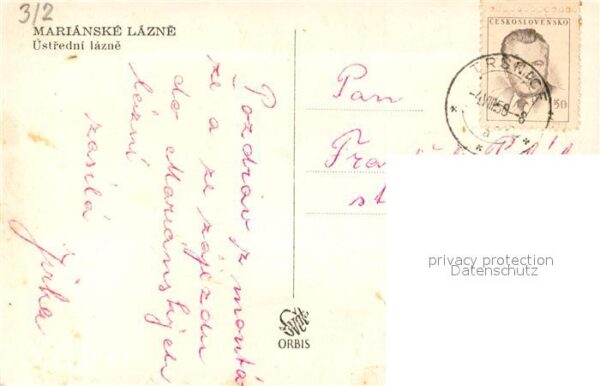 3/2
MARIÁNSKÉ LÁZNĚ
Ústřední lázně
Pozdrav z montá
že a ze zájezdu
do Mariánských
lázní
zasílá
Jirka
Pan
ČESKOSLOVENSKO
50
Svět
ORBIS
privacy protection
Datenschutz